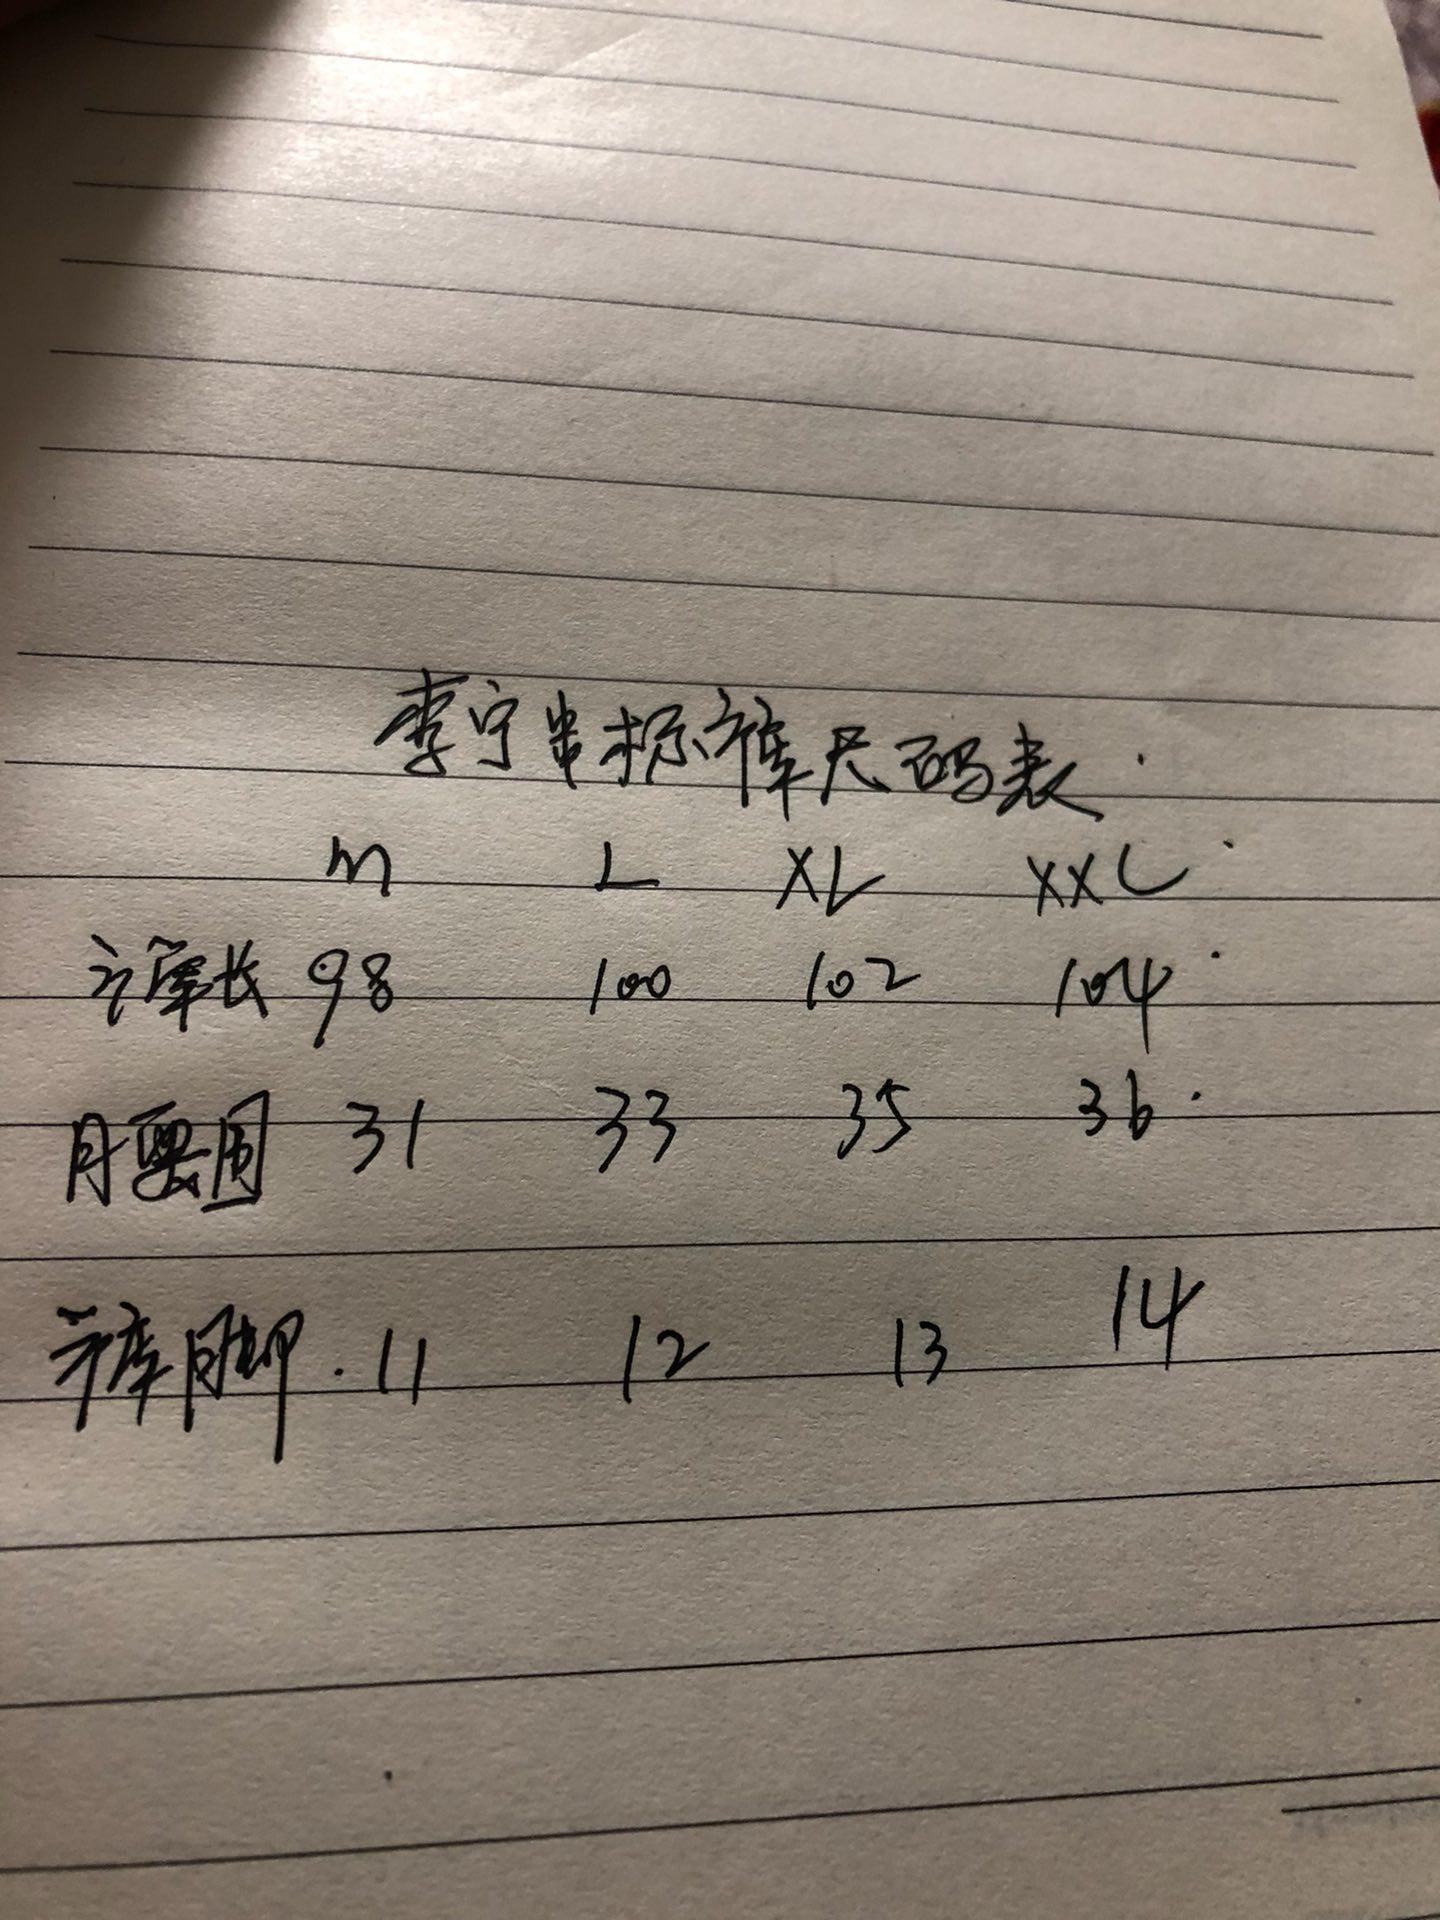 李宁串标裤尺码表
M L XL XXL
裤长 98 100 102 104
腰围 31 33 35 36
裤脚 11 12 13 14